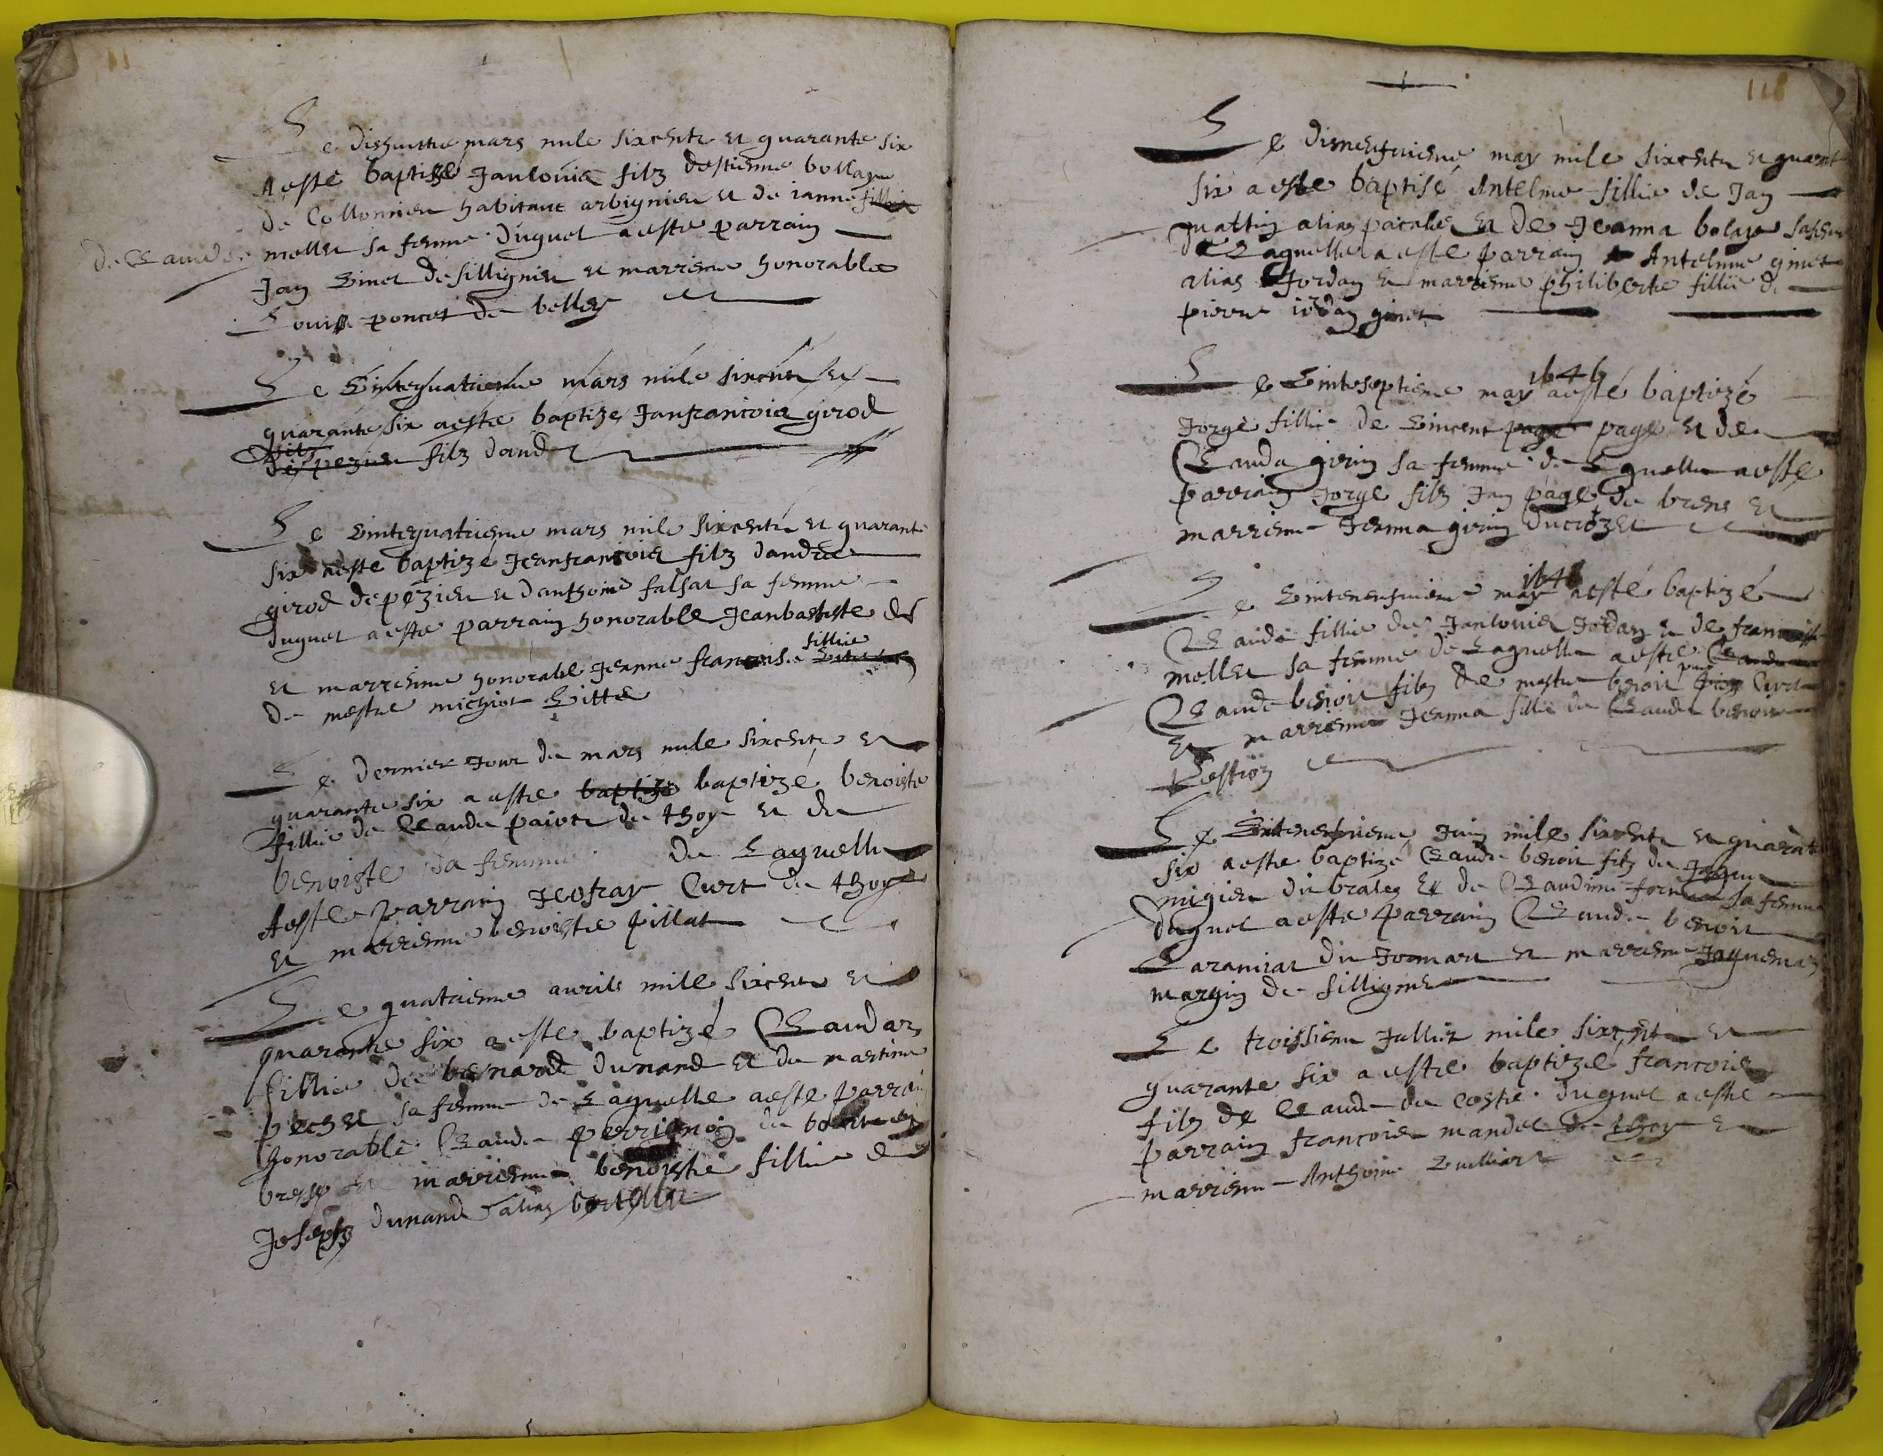 Le dishuitie mars mile sixcentz et quarante six
a esté baptizé Janlouis filz destienne bollage
de Collonnieu habitant arbignieu et de ianne
de Claude
mollet sa femme duquel a este parrain
Jan Ginet de sillignieu et marrieme honorable
Louise poncet de belley
Le Vintequatrieme mars mile sixcentz et
quarante six a este baptize Janfrancois girod
filz dand
Le Vintequatrieme mars mile sixcentz et quarante
six a este baptize Jeanfrancois filz dandre
girod depezieu et danthoine falsat sa femme
duquel a este parrain honorable Jeanbatiste
fillie
et marrieme honorable Jeanne francoise
de mestre michiot Litte
Le dernier Jour de mars mile sixcentz et
quarante six a este baptize baptizé benoiste
fillie de Claude paiot de thoy et de
benoiste sa femme de Laquelle
a este parrain Jeofray Curt de thoy
et marrieme benoiste pillat
Le quatrieme avril mille sixcentz et
quarante six a este baptizé Clauda
fillie de bernard dunand et de martine
pechet sa femme de Laquelle a este parrain
honorable Claude perrignon de
et marrieme benoiste fillie de
Joseph dunand alias
118
Le dixneufvieme may mile sixcentz et quarante
six a este baptisé Antelme fillie de Jan
mattin alias patalie et de Jeanna bolage
de Laquelle a este parrain Antelme ginet
alias Jordan et marrieme philiberte fillie de
pierre iordan ginet
1646
Le Vinteseptieme may a esté baptizé
Jorge fillie de Vincent page page et de
Clauda girin sa femme de Laquelle a este
parrain Jorge filz Jan page de brens et
marrieme Jeanna girin ducrozet
1646
Le Vinteneufvieme may a esté baptizé
Claude fillie de Janlouis Jordan et de
mollet sa femme de Laquelle a este
Claude benoit filz de mestre benoit Curt
et marrieme Jeanna fillie de Claude benoit
Le Vinteneufvieme Juin mile sixcentz et quarante
six a este baptizé Claude benoit filz de Jaque
migieu de et de Claudine sa femme
duquel a este parrain Claude benoit
du et marrieme Jaquema
margin de silligme
Le troissieme Jullict mile sixcentz et
quarante six a este baptizé francois
filz de Claude de coste duquel a este
parrain francois mandet de thoy et
marrieme Anthoine Vulliart